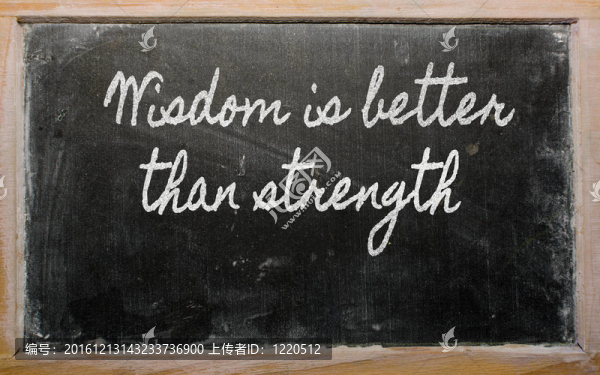 Wisdom is better
than strength
编号：20161213143233736900 上传者ID：1220512